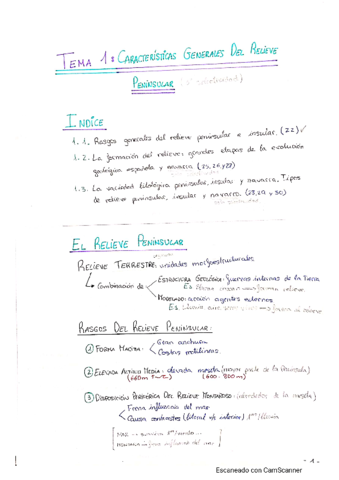 TEMA 1: CARACTERÍSTICAS GENERALES DEL RELIEVE
PENINSULAR
ÍNDICE
1.1. Rasgos generales del relieve peninsular e insular. (22) ✓
1.2. La formación del relieve: grandes etapas de la evolución
geológica española y navarra.
1.3. La variedad litológica peninsular, insular y navarra. Tipos
de relieve peninsular, insular y navarro.
EL RELIEVE PENINSULAR
RELIEVE TERRESTRE: unidades morfoestructurales
Combinación de
ESTRUCTURA GEOLÓGICA: fuerzas internas de la Tierra
MODELADO: acción agentes externos
RASGOS DEL RELIEVE PENINSULAR:
① FORMA MACIZA:
Gran anchura
Costas rectilíneas
② ELEVADA ALTITUD MEDIA: elevada meseta (mayor parte de la Península)
(660m) (600-800m)
③ DISPOSICIÓN PERIFÉRICA DEL RELIEVE MONTAÑOSO: (alrededor de la meseta)
Frena influencias del mar
Causa contrastes (litoral e interior)
- 1 -
Escaneado con CamScanner